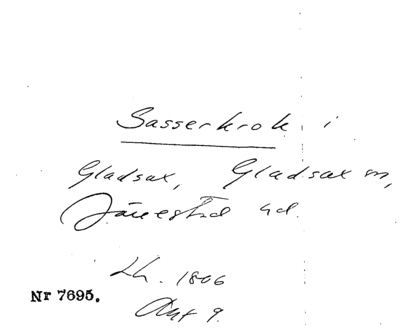 Sasserkrok i
Gladsax, Gladsax sn,
Järrestad hd.
Lh. 1806
Akt 9.
Nr 7695.